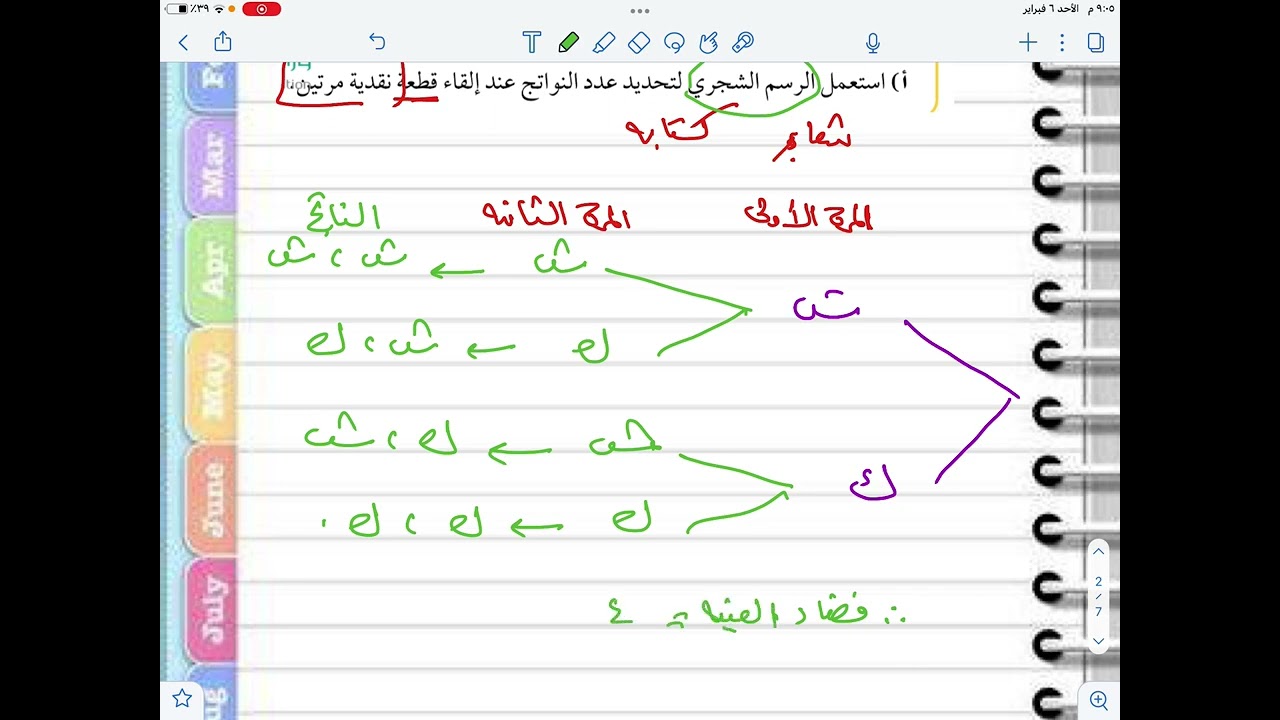 ٩:٠٥ م الأحد ٦ فبراير
٣٩٪
أ) استعمل الرسم الشجري لتحديد عدد النواتج عند إلقاء قطعة نقدية مرتين.
شعار كتابه
المرة الأولى المرة الثانيه الناتج
ش ش ← ش ، ش
ك ← ش ، ك
ك ش ← ك ، ش
ك ← ك ، ك
∴ فضاء العينه = ٤
Mar
Apr
May
June
July
2
/
7